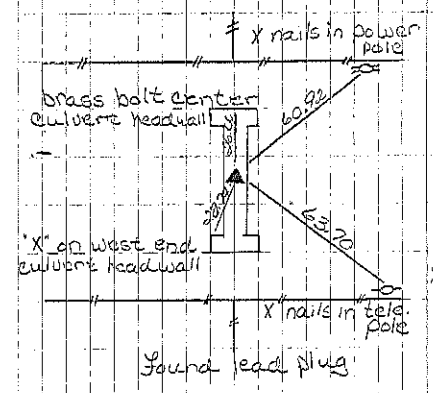 X nails in power
pole
brass bolt center
culvert headwall
60.92
63.70
"X" on west end
culvert headwall
X nails in tele.
pole
found lead plug